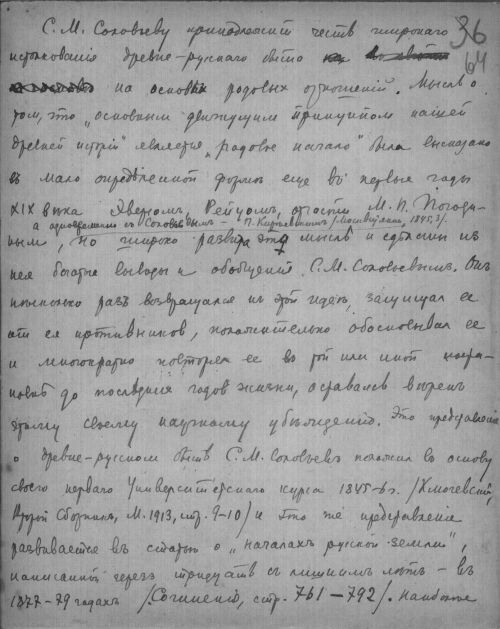 С. М. Соловьеву принадлежит честь широкаго 36
истолкования древне-русскаго быта 64
на основѣ родовых отношений. Мысль о
том, что „основным движущим принципом нашей
древней истории" является „родовое начало" была высказана
в мало определенной форме еще въ первые годы
XIX вѣка Эверсом, Рейцом, отчасти М. П. Погоди-
а одновременно съ Соловьевым – П. Киреевским /Москвитянин, 1845, 3/.
ным, но широко развил эту мысль и сделал из
нея богатые выводы и обобщения С. М. Соловьевым. Он
несколько разъ возвращался к этой идее, защищал ее
от ея противников, положительно обосновывал ее
и многократно повторял ее во той или иной
до последних годов жизни, оставаясь верен
этому своему научному убеждению. Это представление
о древне-русском быте С. М. Соловьев положил в основу
своего перваго Университетскаго курса 1845-6 г. /
Второй Сборник, М. 1913, стр. 9-10/ и это же представление
развивается въ статье о „началах русской земли",
написанной через тридцать с лишним летъ – въ
1877-79 годах /Сочинения, стр. 761–792/. Наиболее